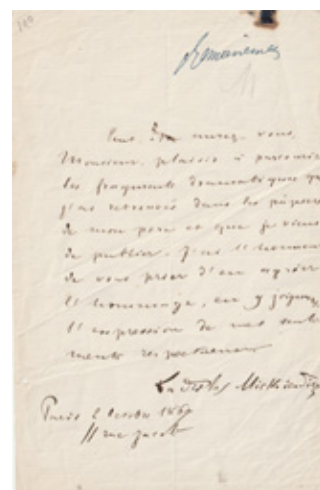 aurez vous,
Monsieur, plaisir à parcourir
les fragments dramatiques que
j'ai retrouvés dans les papiers
de mon père et que je viens
de publier. J'ai l'honneur
de vous prier d'en agréer
l'hommage, en y joignant
l'expression de mes senti
ments respectueux
Ladislas Mickiewicz
Paris 2 octobre
11 rue Jacob